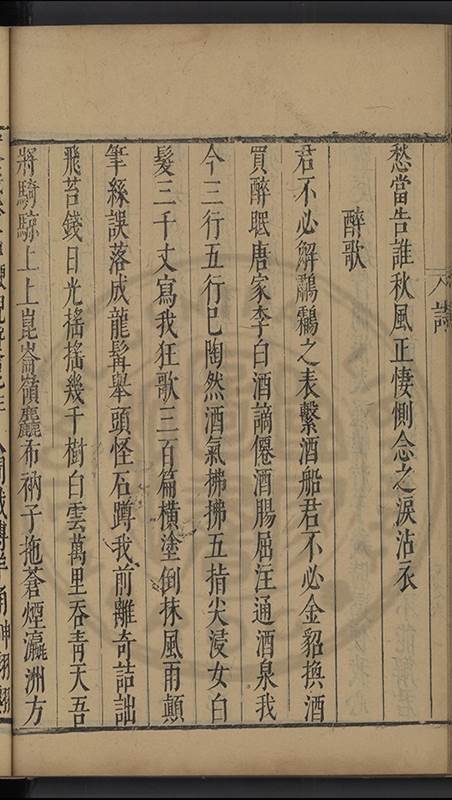 愁當告誰秋風正悽惻念之淚沾衣
醉歌
君不必解鷫鸘之表繫酒船君不必金貂換酒
買醉眠唐家李白酒謫僊酒腸屈注通酒泉我
今三行五行已陶然酒氣拂拂五指尖浸女白
髮三千丈寫我狂歌三百篇橫塗倒抹風雨顛
筆絲誤落成龍髯舉頭怪石蹲我前離奇詰詘
飛苔錢日光搖搖幾千樹白雲萬里吞青天吾
將騎鯨上上崑崙嶺麤布衲子拖蒼煙瀛洲方